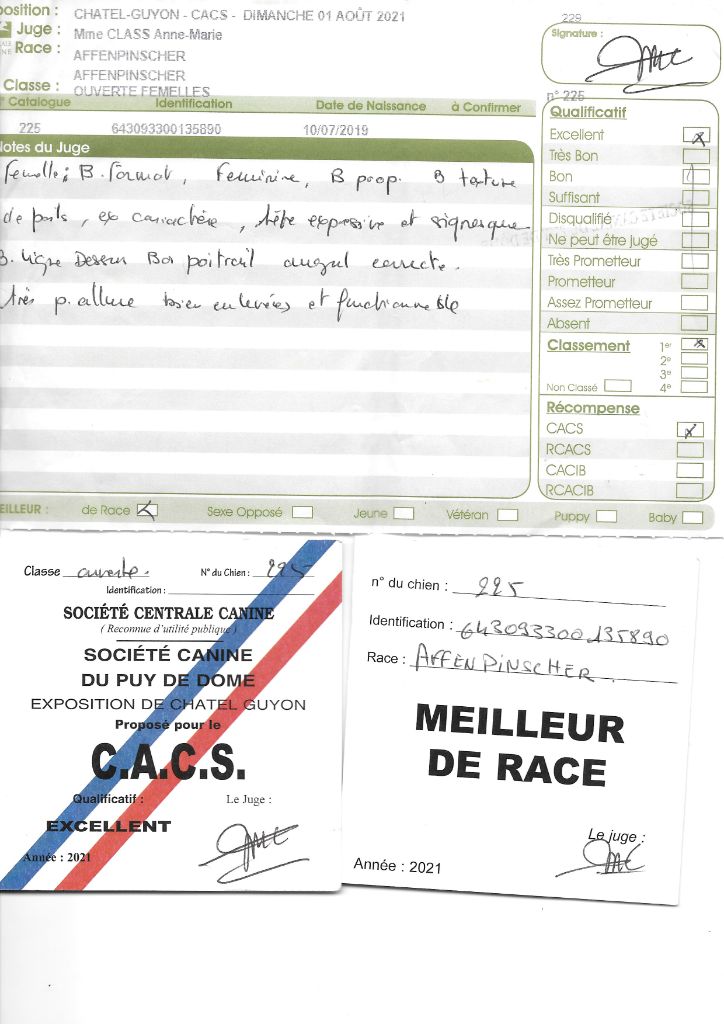 position : CHATEL-GUYON - CACS - DIMANCHE 01 AOÛT 2021
Juge : Mme CLASS Anne-Marie
Race : AFFENPINSCHER
AFFENPINSCHER
Classe : OUVERTE FEMELLES
229
Signature :
n° 225
Catalogue Identification Date de Naissance à Confirmer
225 643093300135890 10/07/2019
Notes du Juge
femelle, B. format, Feminine, B prop. B texture
de poils, ex caractère, tête expressive et
B. ligne Dessus Bon poitrail angul correcte.
très p. allure bien enlevées et
Qualificatif
Excellent x
Très Bon
Bon
Suffisant
Disqualifié
Ne peut être jugé
Très Prometteur
Prometteur
Assez Prometteur
Absent
Classement 1er x
2e
3e
Non Classé 4e
Récompense
CACS x
RCACS
CACIB
RCACIB
EILLEUR : de Race x Sexe Opposé Jeune Vétéran Puppy Baby
Classe ouverte. N° du Chien : 225
Identification :
SOCIÉTÉ CENTRALE CANINE
( Reconnue d'utilité publique )
SOCIÉTÉ CANINE
DU PUY DE DOME
EXPOSITION DE CHATEL GUYON
Proposé pour le
C.A.C.S.
Qualificatif : Le Juge :
EXCELLENT
Année : 2021
n° du chien : 225
Identification : 643093300135890
Race : AFFENPINSCHER
MEILLEUR
DE RACE
Le juge :
Année : 2021